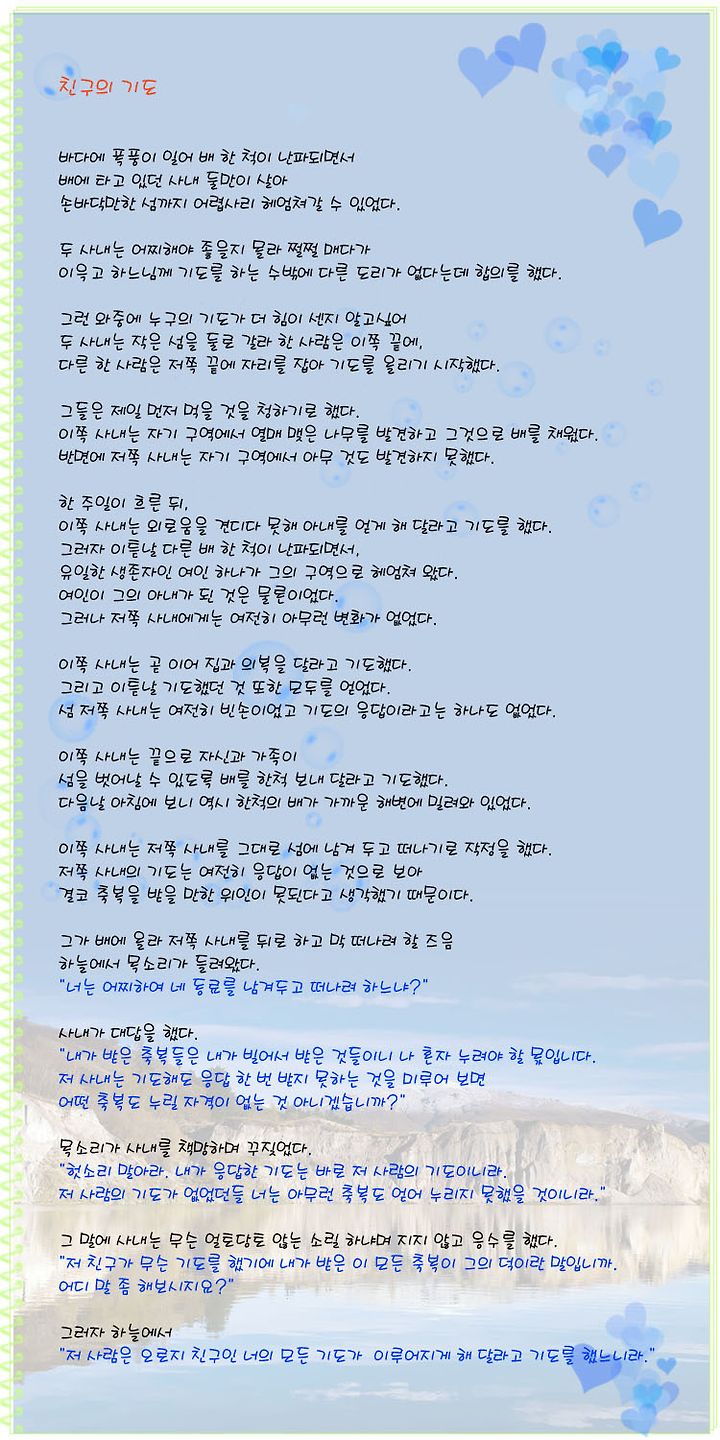 친구의 기도
바다에 폭풍이 일어 배 한 척이 난파되면서
배에 타고 있던 사내 둘만이 살아
손바닥만한 섬까지 어렵사리 헤엄쳐갈 수 있었다.
두 사내는 어찌해야 좋을지 몰라 쩔쩔 매다가
이윽고 하느님께 기도를 하는 수밖에 다른 도리가 없다는데 합의를 했다.
그런 와중에 누구의 기도가 더 힘이 센지 알고싶어
두 사내는 작은 섬을 둘로 갈라 한 사람은 이쪽 끝에,
다른 한 사람은 저쪽 끝에 자리를 잡아 기도를 올리기 시작했다.
그들은 제일 먼저 먹을 것을 청하기로 했다.
이쪽 사내는 자기 구역에서 열매 맺은 나무를 발견하고 그것으로 배를 채웠다.
반면에 저쪽 사내는 자기 구역에서 아무 것도 발견하지 못했다.
한 주일이 흐른 뒤,
이쪽 사내는 외로움을 견디다 못해 아내를 얻게 해 달라고 기도를 했다.
그러자 이튿날 다른 배 한 척이 난파되면서,
유일한 생존자인 여인 하나가 그의 구역으로 헤엄쳐 왔다.
여인이 그의 아내가 된 것은 물론이었다.
그러나 저쪽 사내에게는 여전히 아무런 변화가 없었다.
이쪽 사내는 곧 이어 집과 의복을 달라고 기도했다.
그리고 이튿날 기도했던 것 또한 모두를 얻었다.
섬 저쪽 사내는 여전히 빈손이었고 기도의 응답이라고는 하나도 없었다.
이쪽 사내는 끝으로 자신과 가족이
섬을 벗어날 수 있도록 배를 한척 보내 달라고 기도했다.
다음날 아침에 보니 역시 한척의 배가 가까운 해변에 밀려와 있었다.
이쪽 사내는 저쪽 사내를 그대로 섬에 남겨 두고 떠나기로 작정을 했다.
저쪽 사내의 기도는 여전히 응답이 없는 것으로 보아
결코 축복을 받을 만한 위인이 못된다고 생각했기 때문이다.
그가 배에 올라 저쪽 사내를 뒤로 하고 막 떠나려 할 즈음
하늘에서 목소리가 들려왔다.
"너는 어찌하여 네 동료를 남겨두고 떠나려 하느냐?"
사내가 대답을 했다.
"내가 받은 축복들은 내가 빌어서 받은 것들이니 나 혼자 누려야 할 몫입니다.
저 사내는 기도해도 응답 한 번 받지 못하는 것을 미루어 보면
어떤 축복도 누릴 자격이 없는 것 아니겠습니까?"
목소리가 사내를 책망하며 꾸짖었다.
"헛소리 말아라. 내가 응답한 기도는 바로 저 사람의 기도이니라.
저 사람의 기도가 없었던들 너는 아무런 축복도 얻어 누리지 못했을 것이니라."
그 말에 사내는 무슨 얼토당토 않는 소릴 하냐며 지지 않고 응수를 했다.
"저 친구가 무슨 기도를 했기에 내가 받은 이 모든 축복이 그의 덕이란 말입니까.
어디 말 좀 해보시지요?"
그러자 하늘에서
"저 사람은 오로지 친구인 너의 모든 기도가 이루어지게 해 달라고 기도를 했느니라."